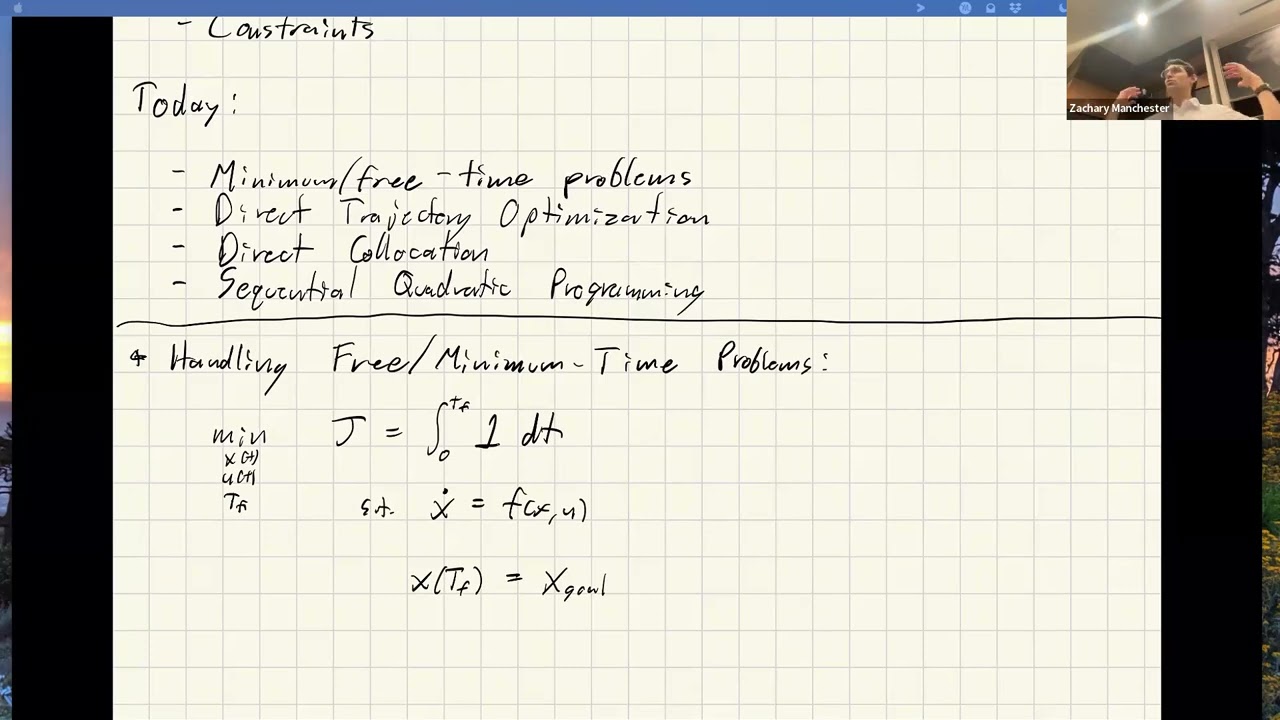 - Constraints
Zachary Manchester
Today:
- Minimum/free-time problems
- Direct Trajectory Optimization
- Direct Collocation
- Sequential Quadratic Programming
* Handling Free/Minimum-Time Problems:
min J = ∫₀^{T_f} 1 dt
x(t)
u(t)
T_f
s.t. ẋ = f(x,u)
x(T_f) = x_goal